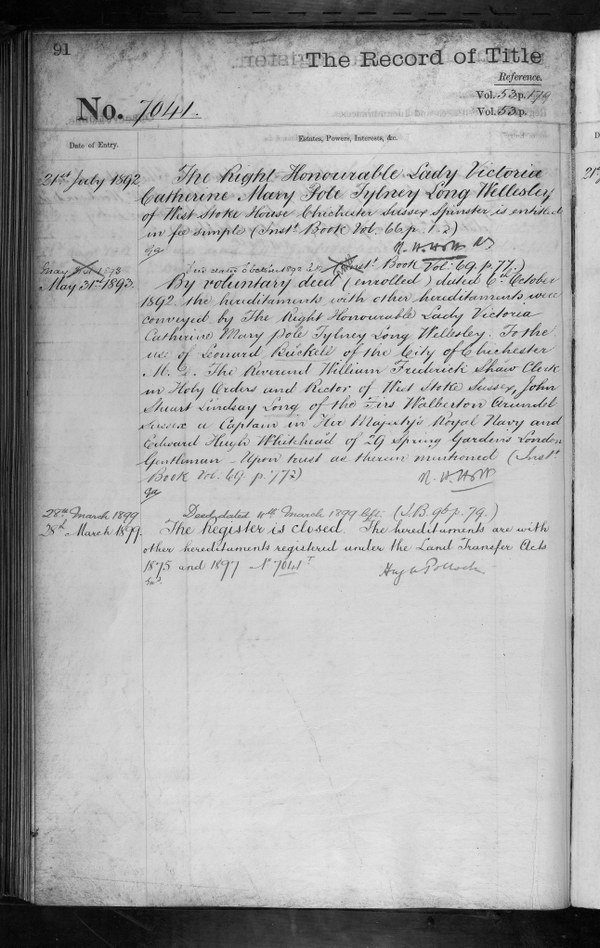 91
The Record of Title
Reference.
Vol. 53 p. 179
Vol. 53 p.
No. 7041.
Date of Entry.
Estates, Powers, Interests, &c.
21st July 1892
The Right Honourable Lady Victoria
Catherine Mary Pole Tylney Long Wellesley
of West Stoke House Chichester Sussex Spinster is entitled
in fee simple (Inst. Book Vol. 66. p.
(Inst. Book Vol. 69. p. 77.)
May 31st 1893.
By voluntary deed (enrolled) dated 6th October
1892 the hereditaments with other hereditaments were
conveyed by The Right Honourable Lady Victoria
Catherine Mary Pole Tylney Long Wellesley. To the
use of Leonard Buckell of the City of Chichester
M.D. The Reverend William Frederick Shaw Clerk
in Holy Orders and Rector of West Stoke Sussex, John
Stuart Lindsay Long of the Firs Walberton Arundel
Sussex a Captain in Her Majesty's Royal Navy and
Edward Hugh Whitehead of 29 Spring Gardens London
Gentleman - Upon trust as therein mentioned (Inst.
Book Vol. 69. p. 773)
28th March 1899
Deed dated 10th March 1899 (I.B. 96 p. 79.)
28th March 1899.
The Register is closed. The hereditaments are with
other hereditaments registered under the Land Transfer Acts
1875 and 1897 No 7041
Hugh Pollock